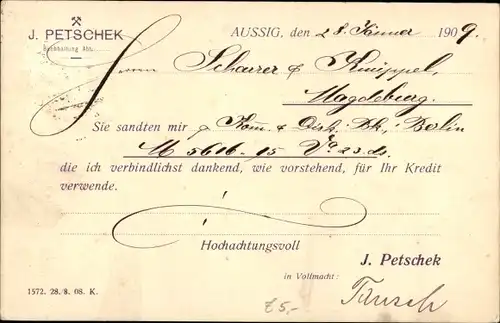 J. PETSCHEK
Buchhaltung Abt.
AUSSIG, den 28. Jänner 1909.
Herrn Scheurer & Knüppel,
Magdeburg.
Sie sandten mir p Kom. & Disk. Bk., Berlin
M 5616.15 Va 23. ds.
die ich verbindlichst dankend, wie vorstehend, für Ihr Kredit
verwende.
Hochachtungsvoll
J. Petschek
in Vollmacht:
1572. 28. 8. 08. K.
£5,-